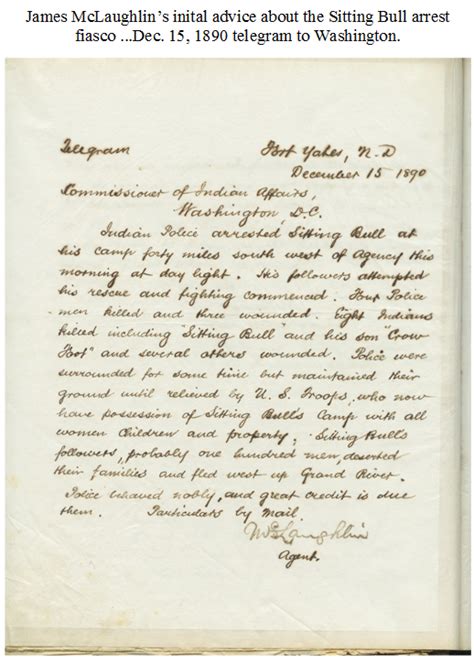 James McLaughlin's inital advice about the Sitting Bull arrest
fiasco ...Dec. 15, 1890 telegram to Washington.
Telegram Fort Yates, N.D
December 15 1890
Commissioner of Indian Affairs,
Washington, D.C.
Indian Police arrested Sitting Bull at
his camp forty miles south west of Agency this
morning at day light. His followers attempted
his rescue and fighting commenced. Four Police
men killed and three wounded. Eight Indians
killed including "Sitting Bull" and his son "Crow
Foot" and several others wounded. Police were
surrounded for some time but maintained their
ground until relieved by U.S. Troops, who now
have possession of Sitting Bull's Camp with all
women children and property, Sitting Bull's
followers, probably one hundred men, deserted
their families and fled west up Grand River.
Police behaved nobly, and great credit is due
them. Particulars by mail.
McLaughlin
Agent.